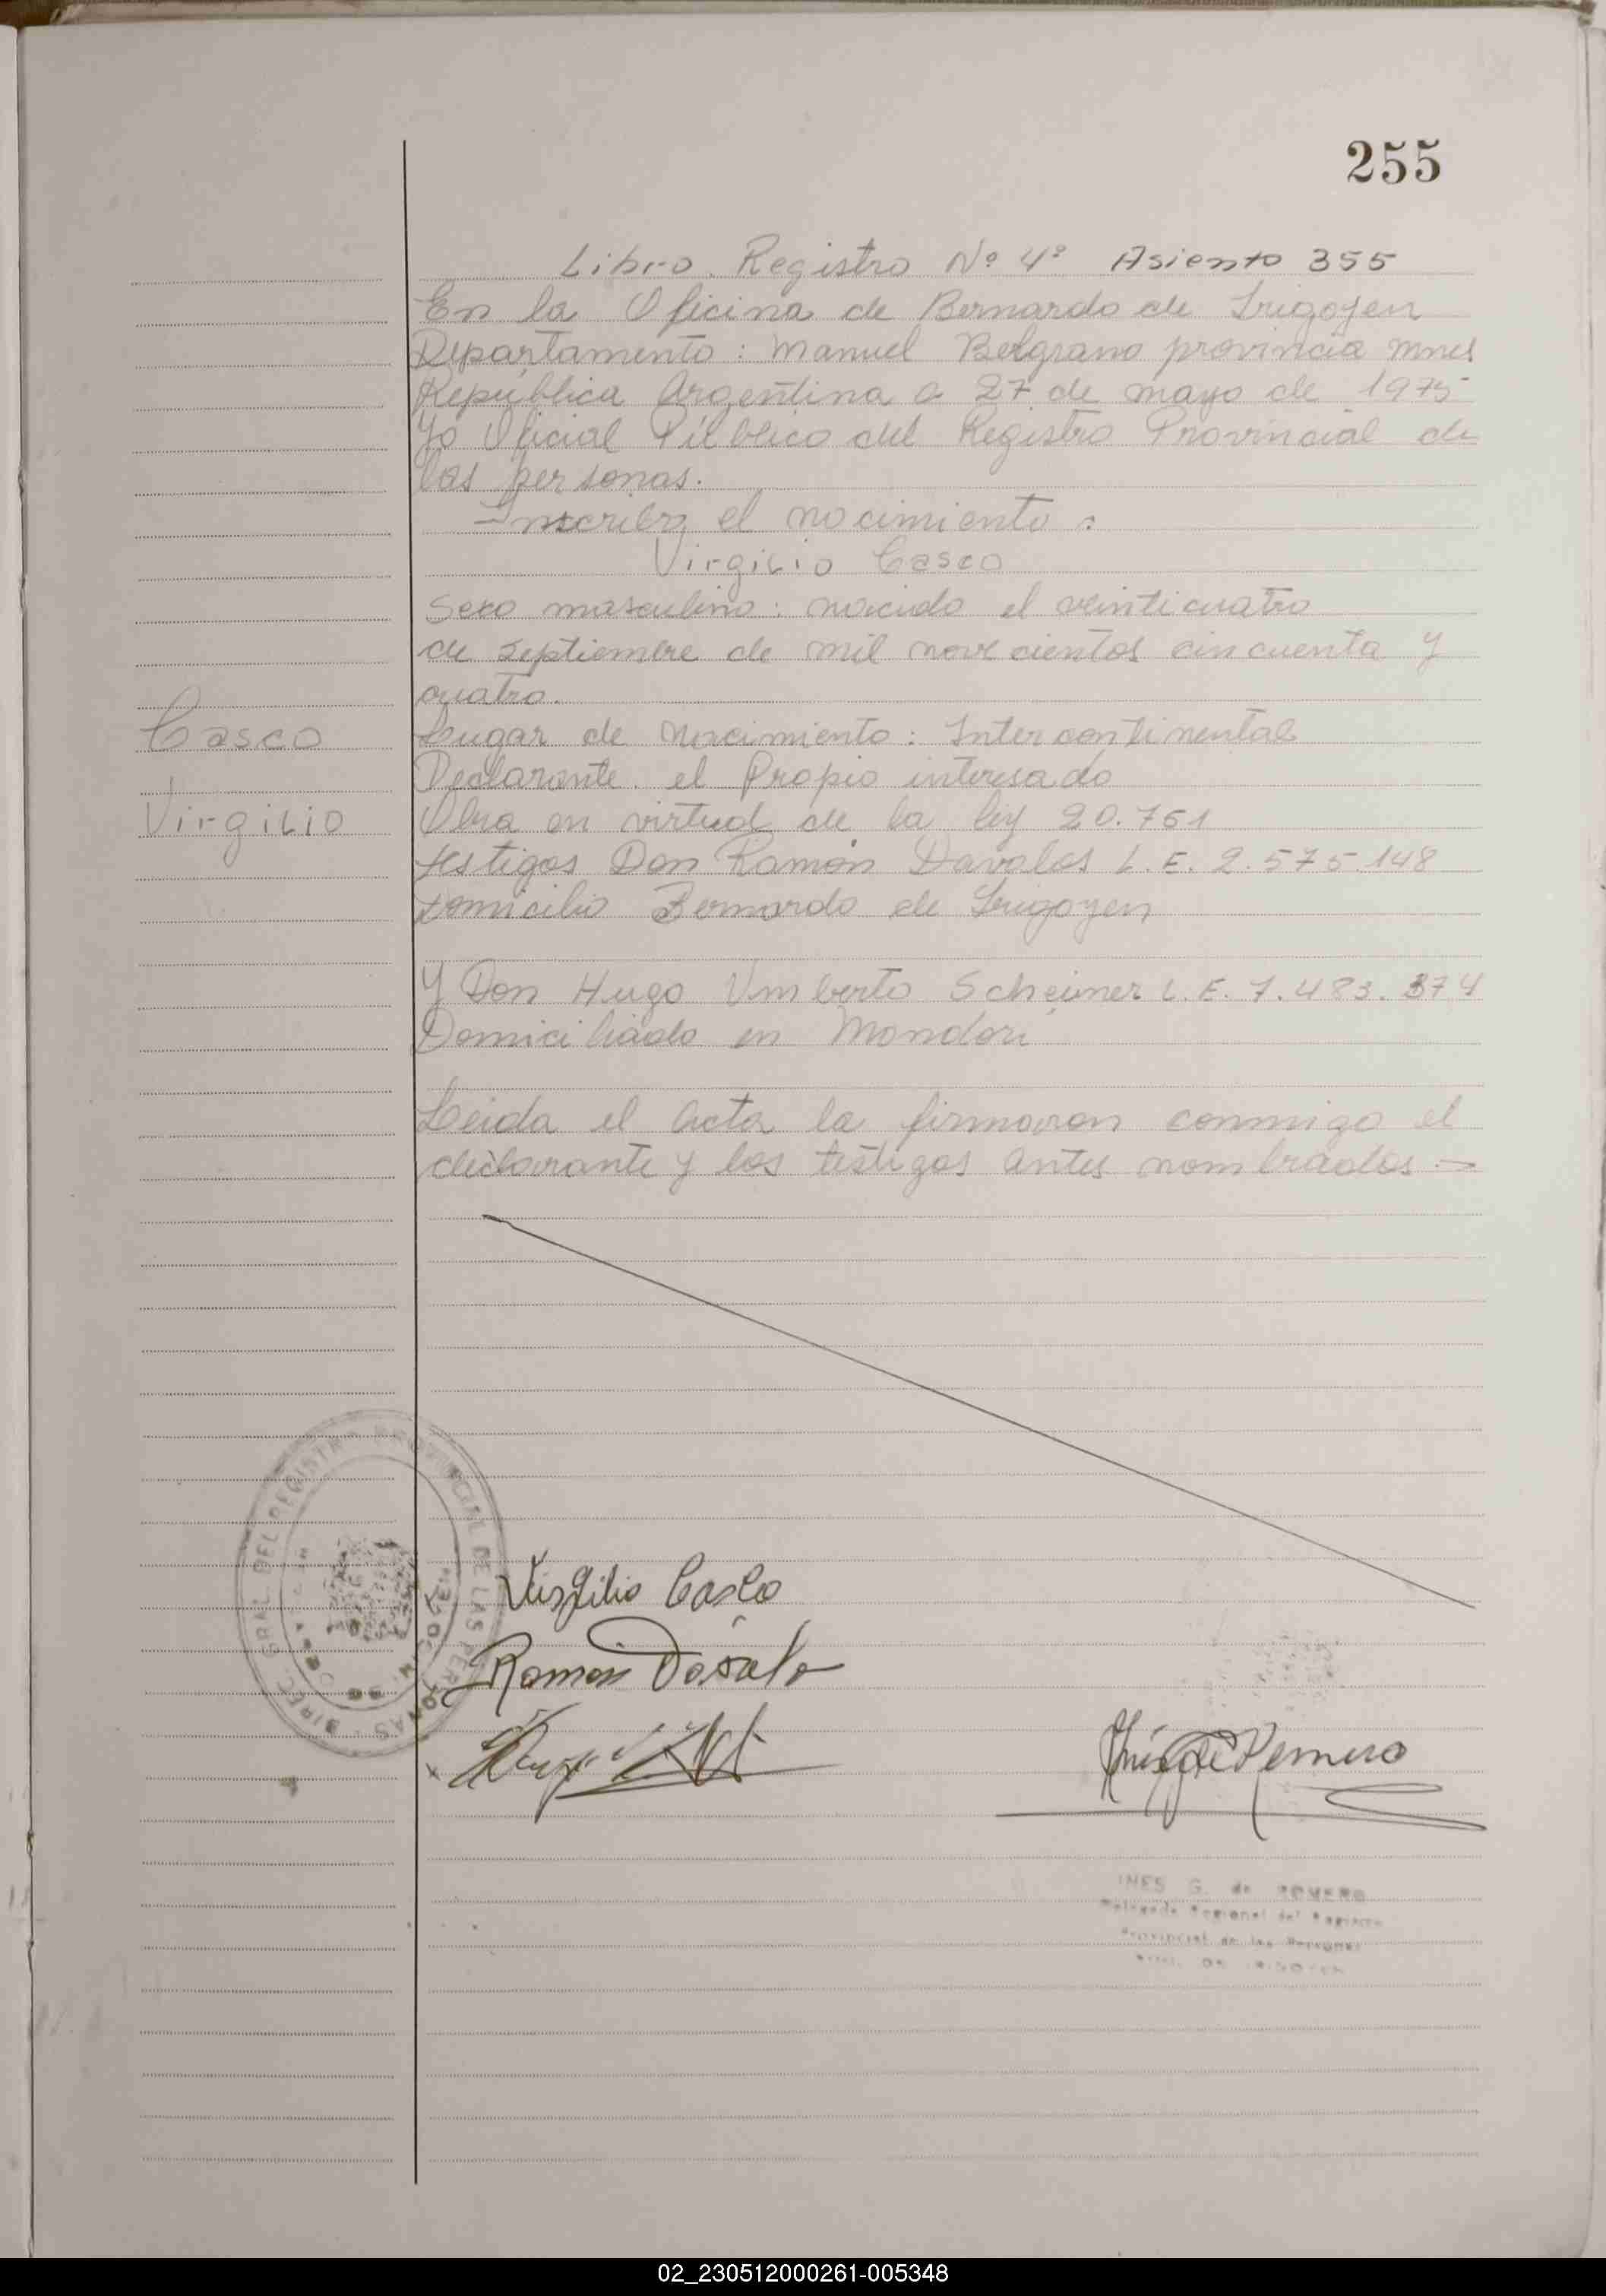 255
Libro. Registro Nº 4º Asiento 355
En la Oficina de Bernardo de Irigoyen
Departamento: Manuel Belgrano provincia mnes
República Argentina a 27 de mayo de 1975
Yo Oficial Público del Registro Provincial de
las personas.
Inscribo el nacimiento:
Virgilio Casco
Sexo masculino: nacido el veinticuatro
de septiembre de mil novecientos cincuenta y
cuatro.
Casco
Lugar de Nacimiento: Intercontinental
Declarante. el Propio interesado
Virgilio
Obra en virtud de la ley 20.751
testigos Don Ramón Davalos L.E. 2.575.148
domicilio Bernardo de Irigoyen
Y Don Hugo Umberto Scheiner L.E. 7.483.374
Domiciliado en Mondori
Leida el Acta la firmaron conmigo el
declarante y los testigos antes nombrados.—
DIREC. GRAL. DEL REGISTRO PROVINCIAL DE LAS PERSONAS
Virgilio Casco
Ramon Davalo
Inés G de Romero
INES G. de ROMERO
Delegada Regional del Registro
Provincial de las Personas
BDO. DE IRIGOYEN
02_230512000261-005348